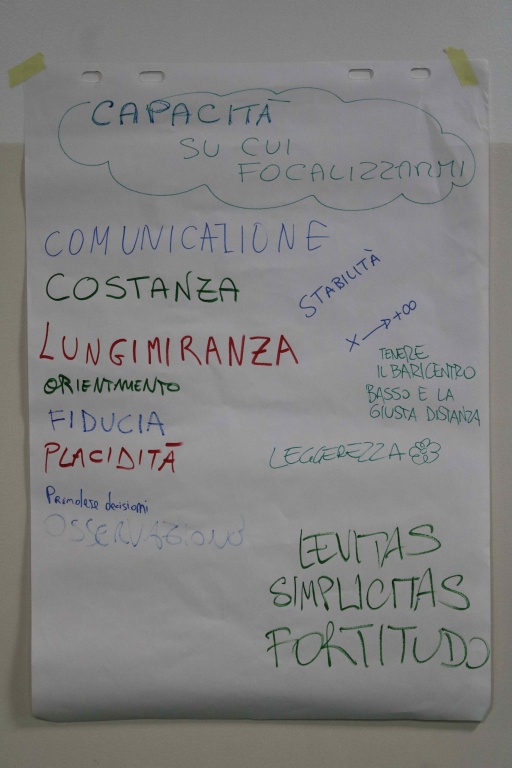 CAPACITÀ
SU CUI
FOCALIZZARMI
COMUNICAZIONE
COSTANZA
STABILITÀ
X → +∞
LUNGIMIRANZA
TENERE
IL BARICENTRO
BASSO E LA
GIUSTA DISTANZA
ORIENTAMENTO
FIDUCIA
PLACIDITÀ
LEGGEREZZA
Prendere decisioni
OSSERVAZIONE
LEVITAS
SIMPLICITAS
FORTITUDO